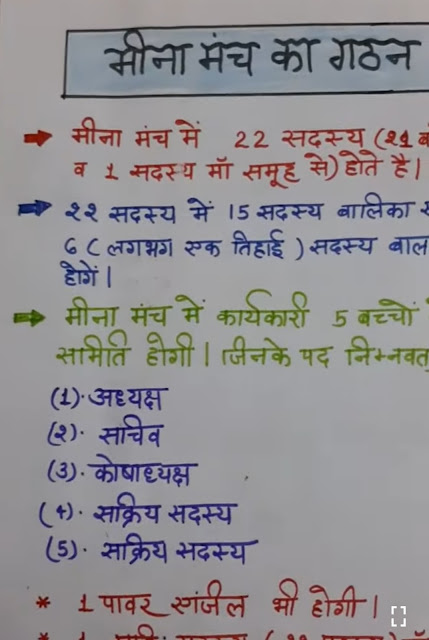 मीना मंच का गठन
मीना मंच में 22 सदस्य (21
व 1 सदस्य माँ समूह से) होते है।
२२ सदस्य में 15 सदस्य बालिका
6 ( लगभग एक तिहाई ) सदस्य बाल
होगें।
मीना मंच में कार्यकारी 5 बच्चों
समिति होगी। जिनके पद निम्नवत
(1). अध्यक्ष
(२). सचिव
(3). कोषाध्यक्ष
(4). सक्रिय सदस्य
(5). सक्रिय सदस्य
* 1 पावर एंजील भी होगी।
* 1